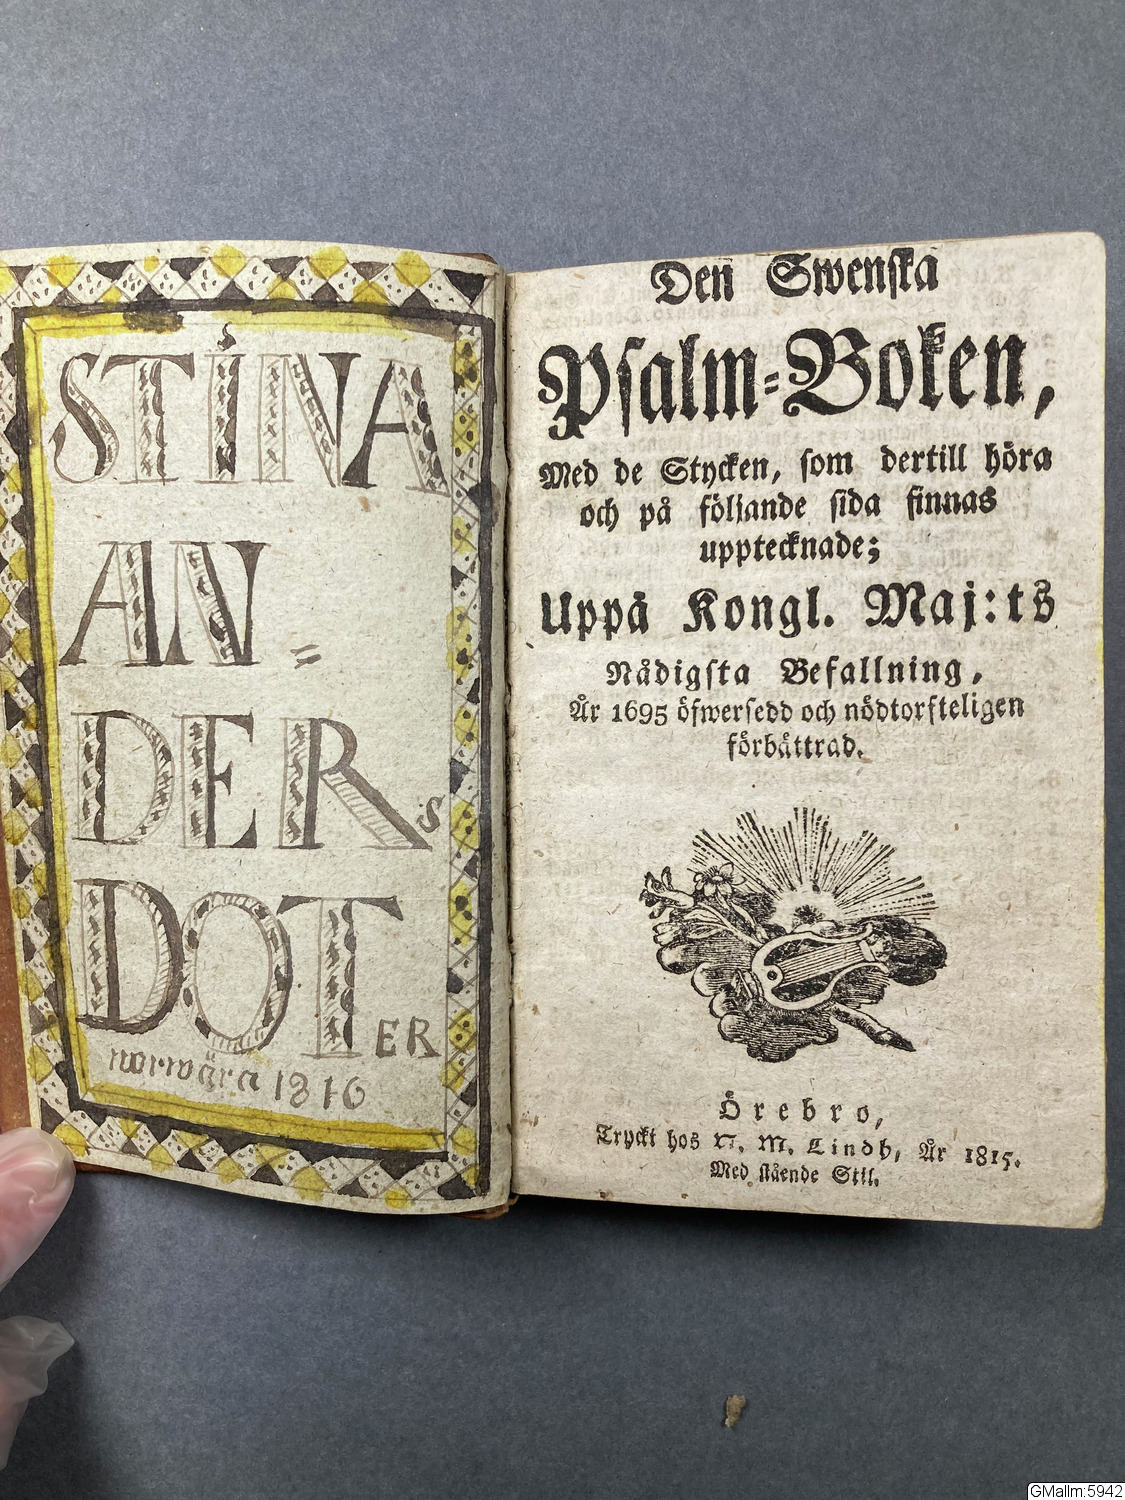 STINA
AN=
DERs
DOTER
norwära 1816
Den Swenska
Psalm-Boken,
Med de Stycken, som dertill höra
och på följande sida finnas
upptecknade;
Uppå Kongl. Maj:ts
Nådigsta Befallning,
År 1695 öfwersedd och nödtorfteligen
förbättrad.
Örebro,
Tryckt hos N. M. Lindh, År 1815.
Med stående Stil.
GMallm:5942